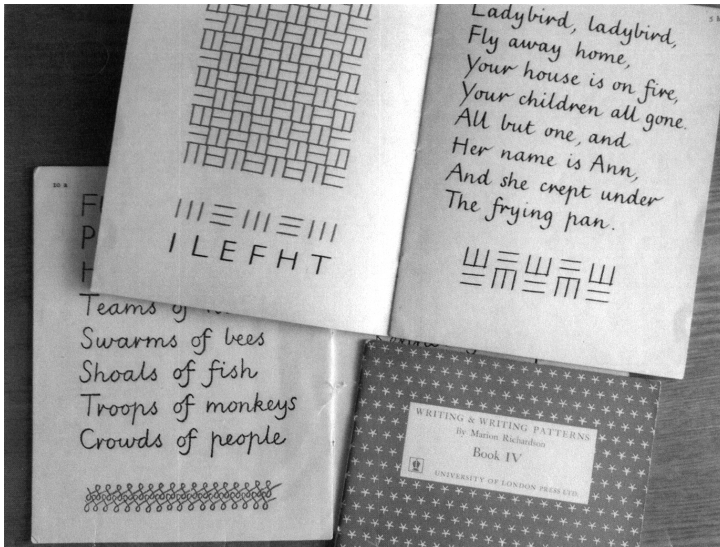 ILEFHT
Ladybird, ladybird,
Fly away home,
Your house is on fire,
Your children all gone.
All but one, and
Her name is Ann,
And she crept under
The frying pan.
10 A
Teams of
Swarms of bees
Shoals of fish
Troops of monkeys
Crowds of people
WRITING & WRITING PATTERNS
By Marion Richardson
Book IV
UNIVERSITY OF LONDON PRESS LTD.